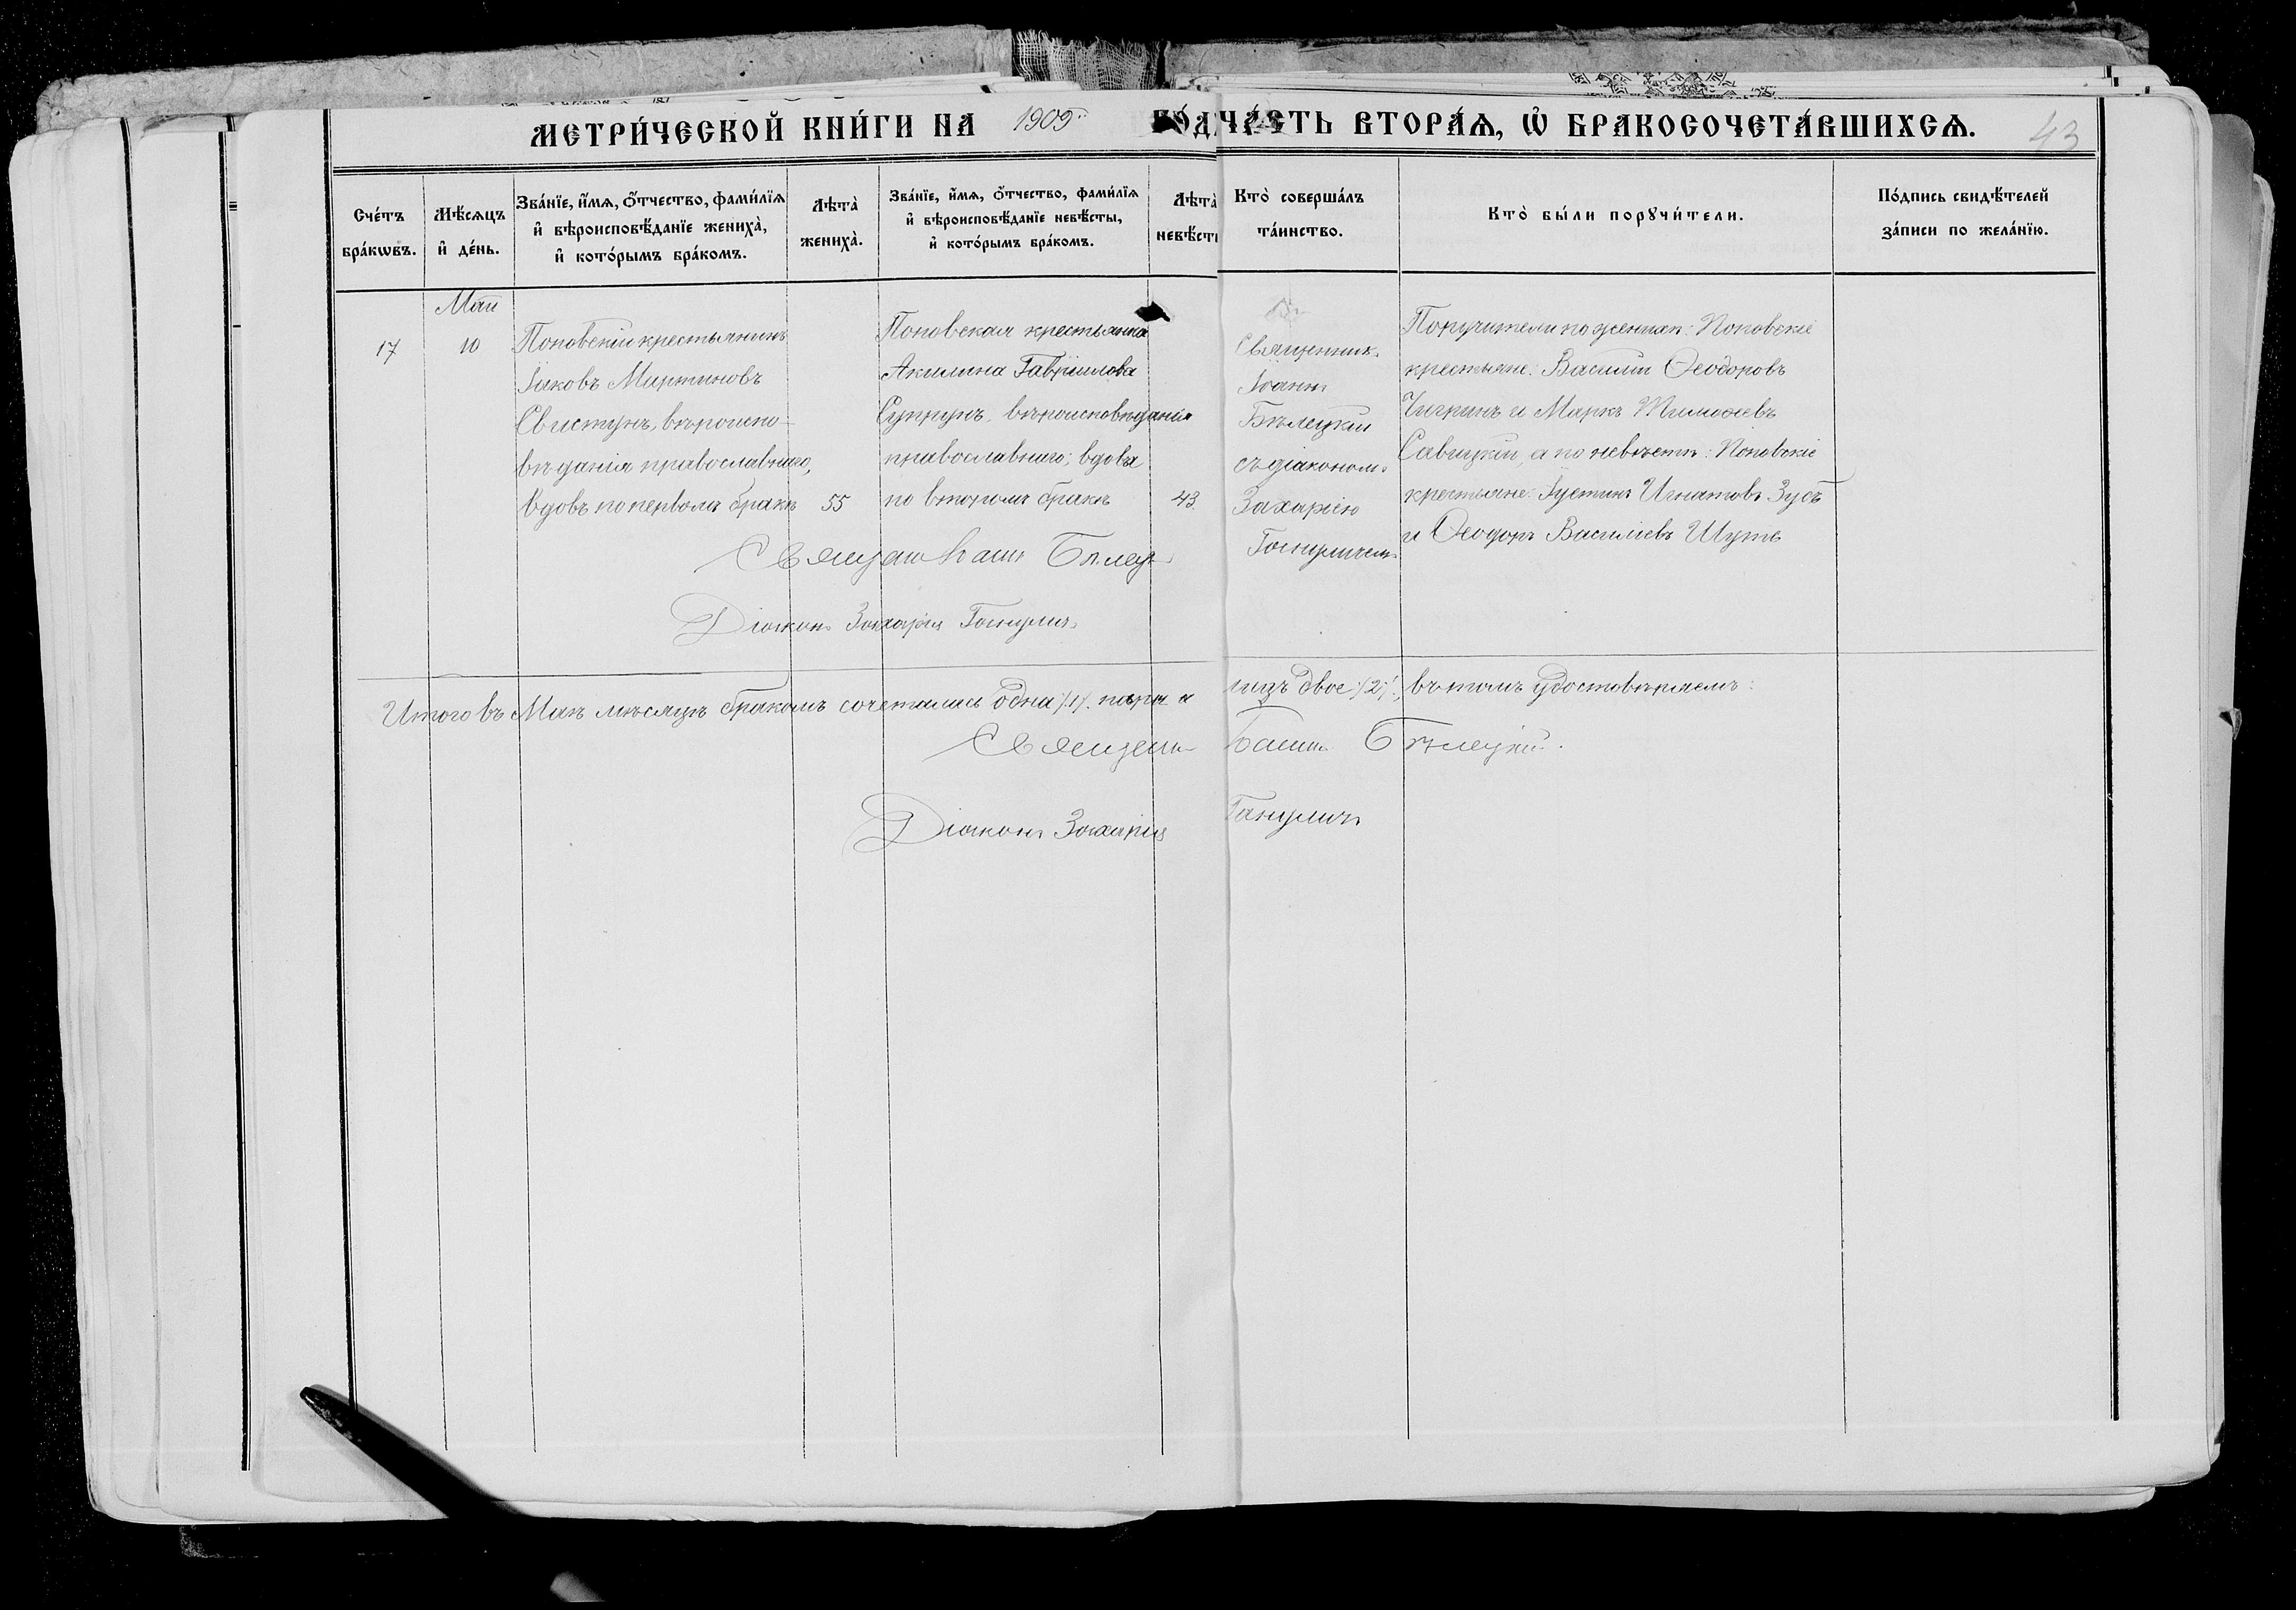 МЕТРИ́ЧЕСКОЙ КНИ́ГИ НА 1909 ГО́ДЪ ЧА́СТЬ ВТОРА́Ѧ, Ѡ҆ БРАКОСОЧЕТА́ВШИХСѦ.
43
Сче́тъ бра́кѡвъ.
Мѣ́сѧцъ и҆ де́нь.
Зва́нїе, и҆́мѧ, ѻ҆́тчество, фами́лїѧ
и҆ вѣроисповѣ́данїе жениха̀,
и҆ кото́рымъ бра́комъ.
Лѣта̀ жениха̀.
Зва́нїе, и҆́мѧ, ѻ҆́тчество, фами́лїѧ
и҆ вѣроисповѣ́данїе невѣ́сты,
и҆ кото́рымъ бра́комъ.
Лѣта̀
невѣ́сты
Кто̀ соверша́лъ
та́инство.
Кто̀ бы́ли порꙋчи́тели.
По́дпись свидѣ́телей
за́писи по жела́нїю.
Май
17
10
Поповскій крестьянинъ
Іаковъ Мартиновъ
Свистунъ, вѣроиспо-
вѣданія православнаго,
вдовъ по первомъ бракѣ
55
Поповская крестьянка
Акилина Гавріилова
Супрунъ, вѣроисповѣданія
православнаго; вдова
по второмъ бракѣ
43
Священникъ
Іоаннъ
Бѣлецкій
съ діакономъ
Захаріею
Поручители по женихѣ: Поповскіе
крестьяне: Василій Ѳеодоровъ
Чигринъ и Маркъ Тимоѳеевъ
Савицкій, а по невѣстѣ: Поповскіе
крестьяне: Іустинъ Игнатовъ Зубъ
и Ѳеодоръ Василіевъ Шуть
Діаконъ Захарія
Итого въ Маѣ мѣсяцѣ бракомъ сочетались одна /1/. пара а
лицъ двое /2/, въ томъ удостовѣряемъ:
Іоаннъ Бѣлецкій.
Діаконъ Захарія